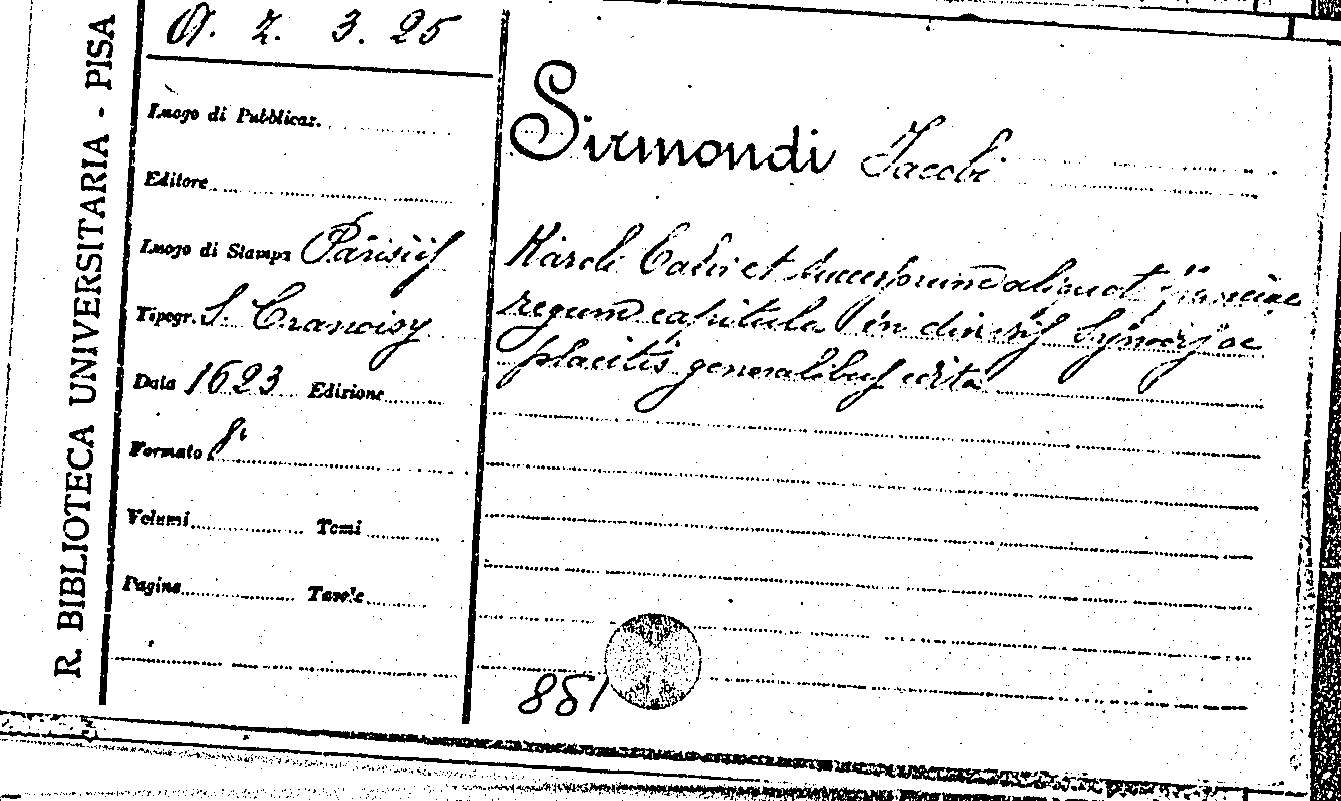 R. BIBLIOTECA UNIVERSITARIA - PISA
A. z. 3. 25
Luogo di Pubblicaz.
Editore
Luogo di Stampa Parisiis
Tipogr. S. Cramoisy
Data 1623 Edizione
Formato 8°
Volumi Tomi
Pagine Tavole
Sirmondi Jacobi
Karoli Calvi et successorum aliquot Franciae
regum capitula in diversis synodis ac
placitis generalibus edita
881